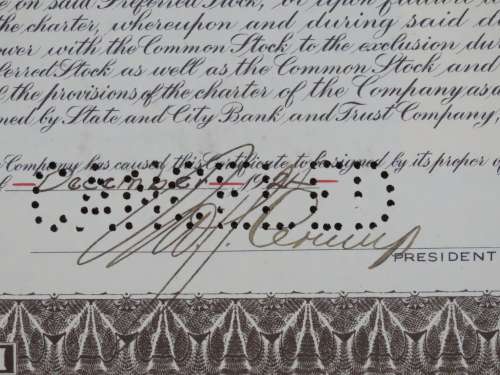 on said Preferred Stock, or upon future
the charter, whereupon and during said
with the Common Stock to the exclusion
Stock as well as the Common Stock and
the provisions of the charter of the Company as
by State and City Bank and Trust Company,
Company has caused this Certificate to be signed by its proper
December 1924
CANCELLED
PRESIDENT